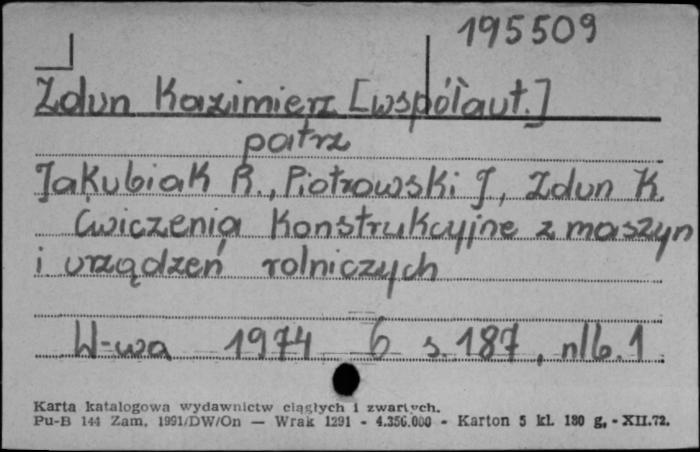 195509
Zdun Kazimierz [współaut.]
patrz
Jakubiak R., Piotrowski J., Zdun K.
Ćwiczenia konstrukcyjne z maszyn
i urządzeń rolniczych
W-wa 1974 6 s. 187, nlb. 1.
Karta katalogowa wydawnictw ciągłych i zwartych.
Pu-B 144 Zam. 1991/DW/On — Wrak 1291 - 4.356.000 - Karton 5 kl. 180 g. - XII.72.